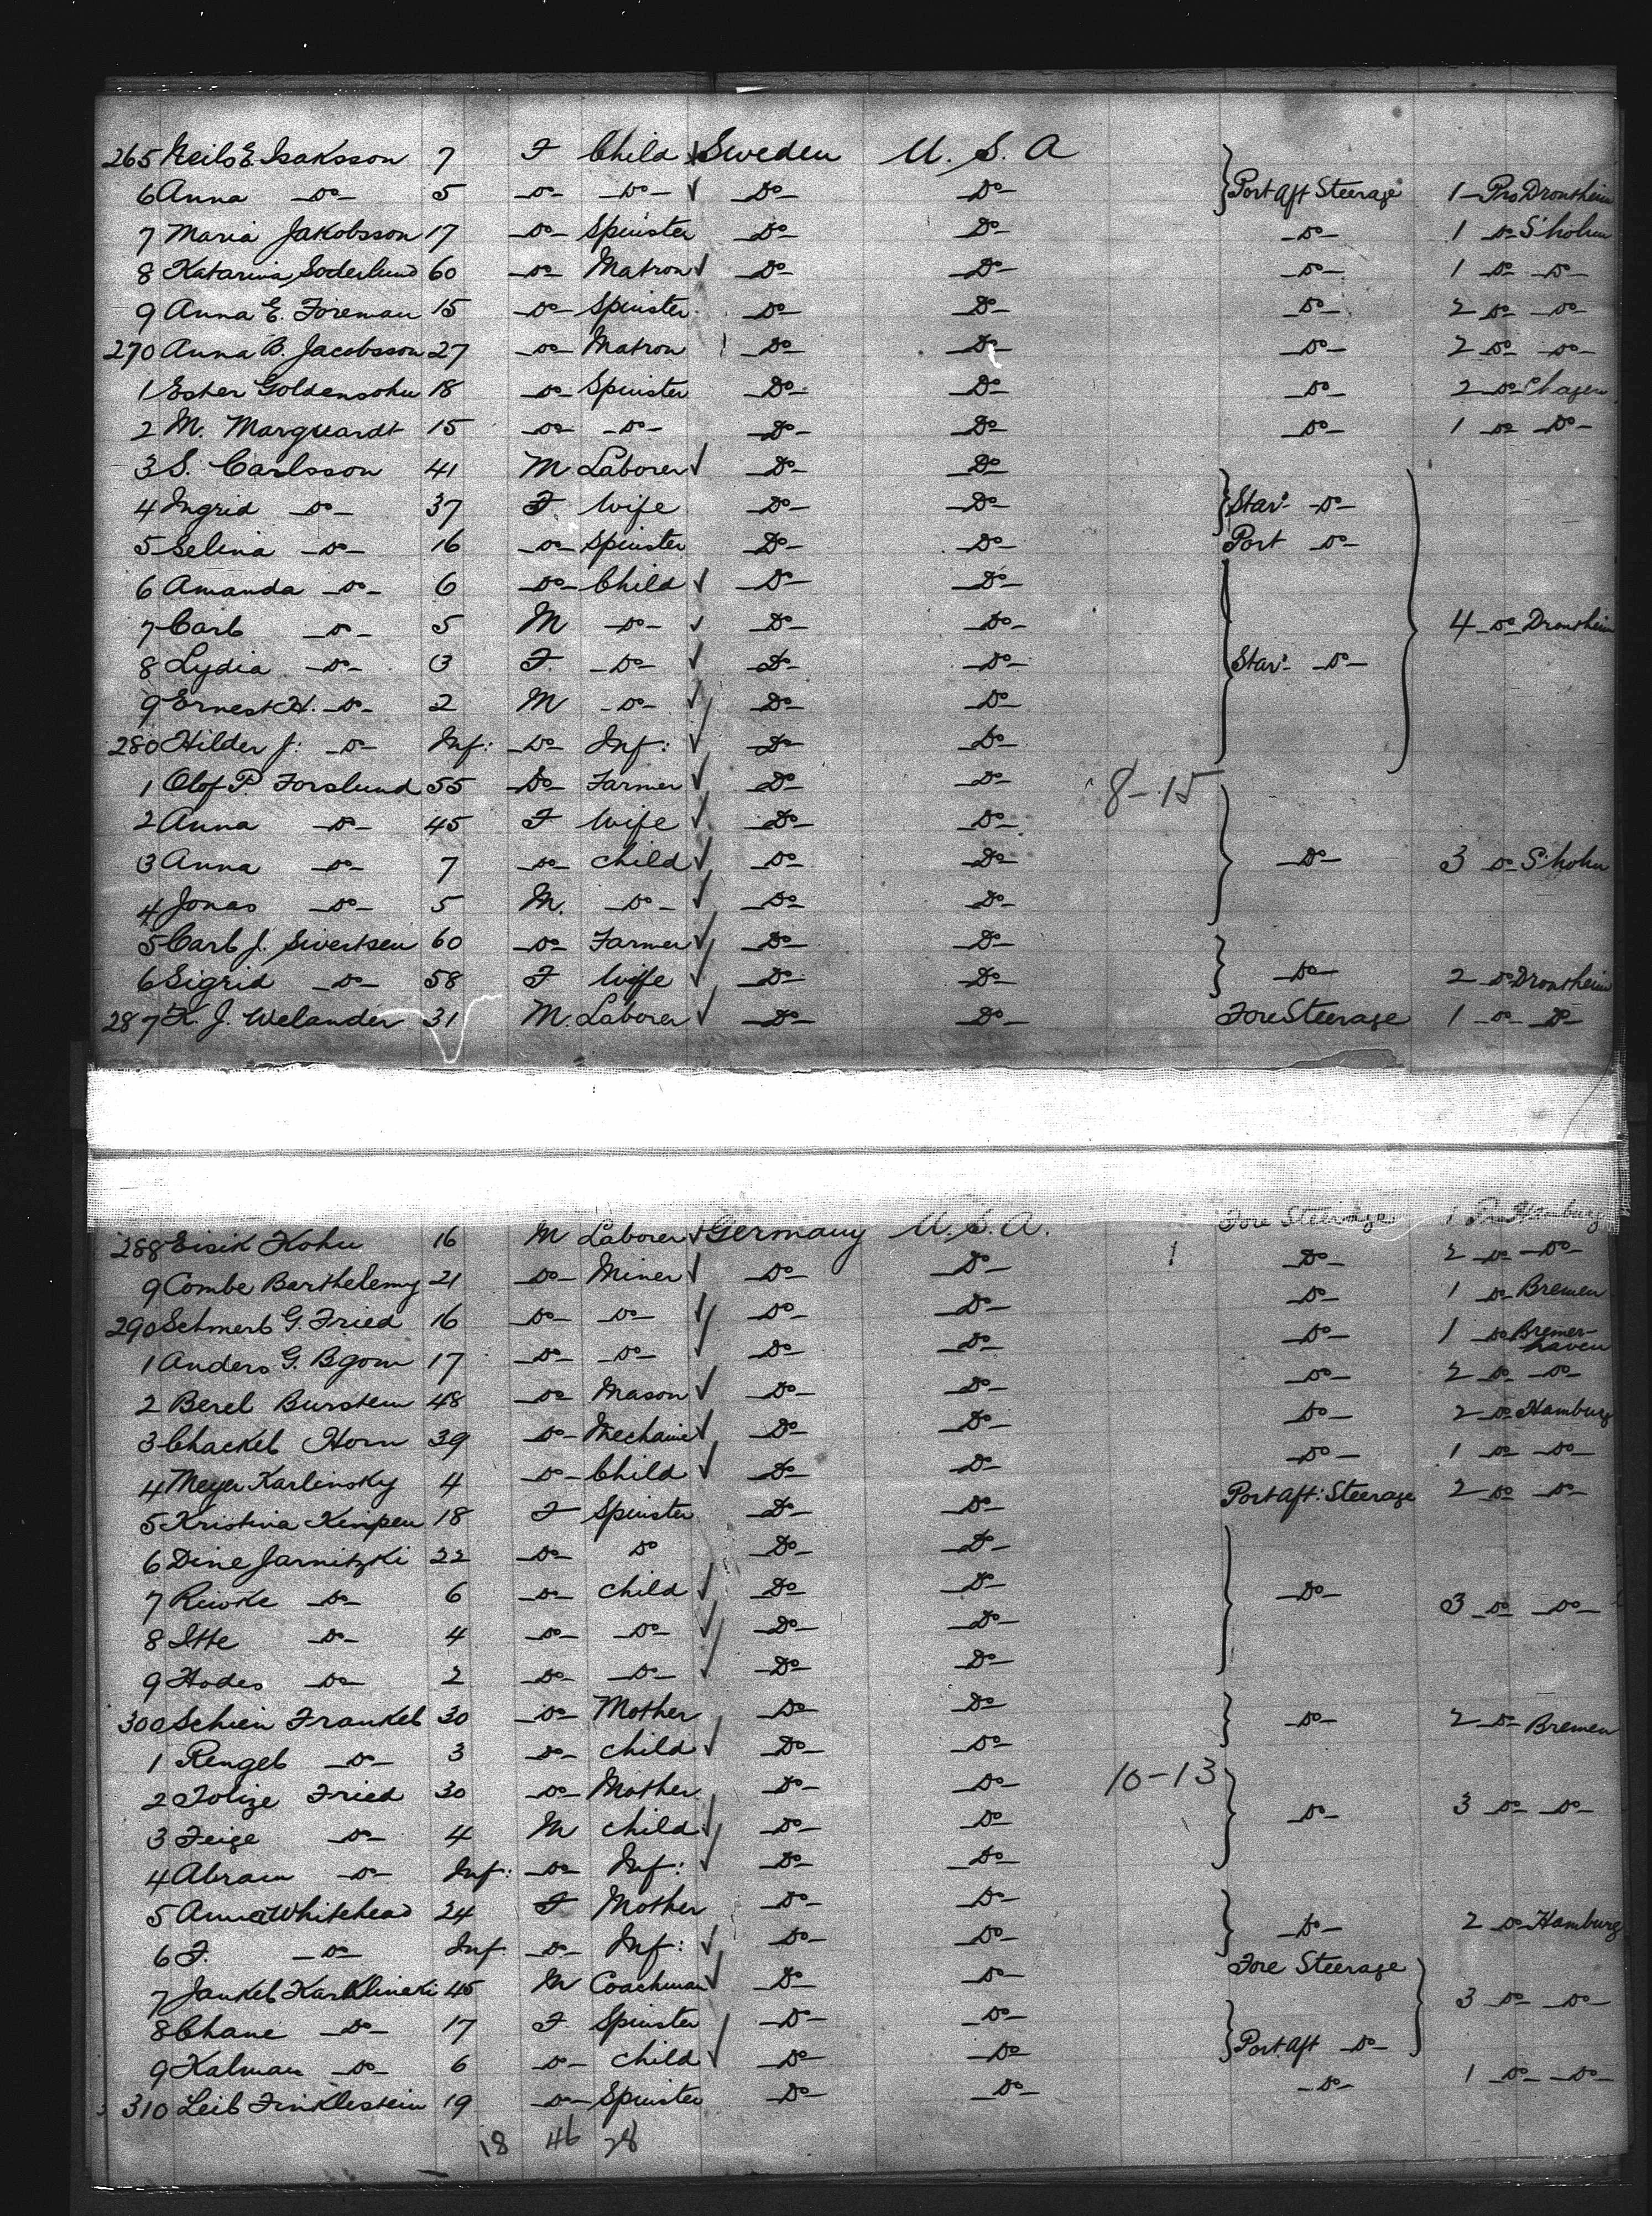 265 Neils E. Isaksson 7 F Child Sweden U. S. A
6 Anna -Do- 5 -Do- -Do- -Do- -Do- Port aft Steerage 1 - Pro Drontheim
7 Maria Jakobsson 17 -Do- Spinster -Do- -Do- -Do- 1 -Do- S'holm
8 Katarina Soderlund 60 -Do- Matron -Do- -Do- -Do- 1 -Do- -Do-
9 Anna E. Foreman 15 -Do- Spinster -Do- -Do- -Do- 2 -Do- -Do-
270 Anna B. Jacobsson 27 -Do- Matron -Do- -Do- -Do- 2 -Do- -Do-
1 Ester Goldensohn 18 -Do- Spinster -Do- -Do- -Do- 2 -Do- C'hagen
2 M. Marquardt 15 -Do- -Do- -Do- -Do- -Do- 1 -Do- -Do-
3 S. Carlsson 41 M Laborer -Do- -Do-
4 Ingrid -Do- 37 F Wife -Do- -Do- Star: -Do-
5 Selina -Do- 16 -Do- Spinster -Do- -Do- Port -Do-
6 Amanda -Do- 6 -Do- Child -Do- -Do-
7 Carl -Do- 5 M -Do- -Do- -Do- 4 -Do- Drontheim
8 Lydia -Do- 3 F -Do- -Do- -Do- Star: -Do-
9 Ernest H. -Do- 2 M -Do- -Do- -Do-
280 Hilder J: -Do- Inf: -Do- Inf: -Do- -Do-
1 Olof P. Forslund 55 -Do- Farmer -Do- -Do- 8-15
2 Anna -Do- 45 F Wife -Do- -Do-
3 Anna -Do- 7 -Do- Child -Do- -Do- -Do- 3 -Do- S'holm
4 Jonas -Do- 5 M. -Do- -Do- -Do-
5 Carl J. Sivertsen 60 -Do- Farmer -Do- -Do-
6 Sigrid -Do- 58 F Wife -Do- -Do- -Do- 2 -Do- Drontheim
287 K. J. Welander 31 M. Laborer -Do- -Do- Fore Steerage 1 -Do- -Do-
288 Eisik Kohn 16 M Laborer Germany U. S. A. Fore Steerage 1 Pro Hamburg
9 Combe Barthelemy 21 -Do- Miner -Do- -Do- 1 -Do- 2 -Do- -Do-
290 Schmerl G. Fried 16 -Do- -Do- -Do- -Do- -Do- 1 -Do- Bremen
1 Anders G. Bgom 17 -Do- -Do- -Do- -Do- -Do- 1 -Do- Bremerhaven
2 Berel Burstein 48 -Do- Mason -Do- -Do- -Do- 2 -Do- -Do-
3 Chackel Horn 39 -Do- Mechanic -Do- -Do- -Do- 2 -Do- Hamburg
4 Meyer Karlinsky 4 -Do- Child -Do- -Do- -Do- 1 -Do- -Do-
5 Kristina Kinpen 18 F Spinster -Do- -Do- Port aft: Steerage 2 -Do- -Do-
6 Dine Jarnitzki 22 -Do- Do -Do- -Do-
7 Riwke -Do- 6 -Do- Child -Do- -Do- -Do- 3 -Do- -Do-
8 Itte -Do- 4 -Do- -Do- -Do- -Do-
9 Hodes -Do- 2 -Do- -Do- -Do- -Do-
300 Schein Frankel 30 -Do- Mother -Do- -Do- -Do- 2 -Do- Bremen
1 Rengel -Do- 3 -Do- Child -Do- -Do-
2 Tolize Fried 30 -Do- Mother -Do- -Do- 10-13
3 Feige -Do- 4 M Child -Do- -Do- -Do- 3 -Do- -Do-
4 Abram -Do- Inf: -Do- Inf: -Do- -Do-
5 Anna Whitehead 24 F Mother -Do- -Do-
6 F. -Do- Inf. -Do- Inf: -Do- -Do- -Do- 2 -Do- Hamburg
7 Jankel Karklineki 45 M Coachman -Do- -Do- Fore Steerage 3 -Do- -Do-
8 Chane -Do- 17 F Spinster -Do- -Do-
9 Kalman -Do- 6 -Do- Child -Do- -Do- Port aft -Do-
310 Leib Finklestein 19 -Do- Spinster -Do- -Do- -Do- 1 -Do- -Do-
18 46 28